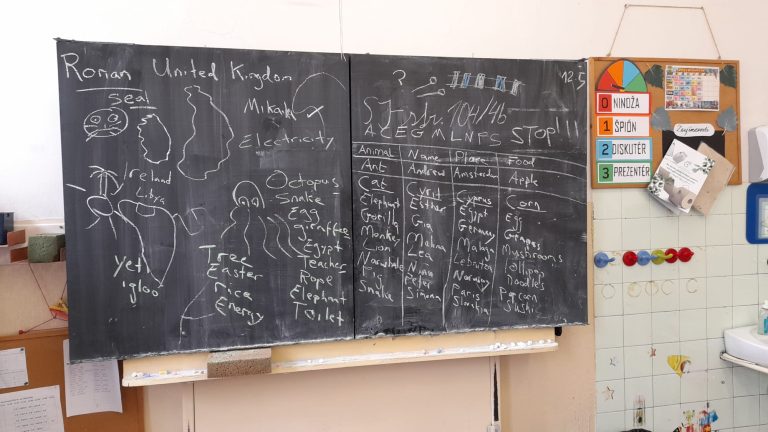 Roman United Kingdom
seal
Mikal
Electricity
Ireland
Libra
Octopus
Snake
Egg
giraffe
Egypt
Teacher
Rope
Elephant
Toilet
Tree
Easter
rica
Energy
yeti
igloo
? 12.5
str. 104/4b
A C E G M L N P S STOP!!!
Animal Name Place Food
Ant Andrew Amsterdam Apple
Cat Cyril Cyprus Corn
Elephant Esther Egypt Egg
Gorilla Gia Germany Grapes
Monkey Malina Malaga Myshrooms
Lion Lea Lollipop
Nina Noodles
Pig Peter Paris Popcorn
Snake Simona Sushi
0 NINDŽA
1 ŠPIÓN
2 DISKUTÉR
3 PREZENTÉR